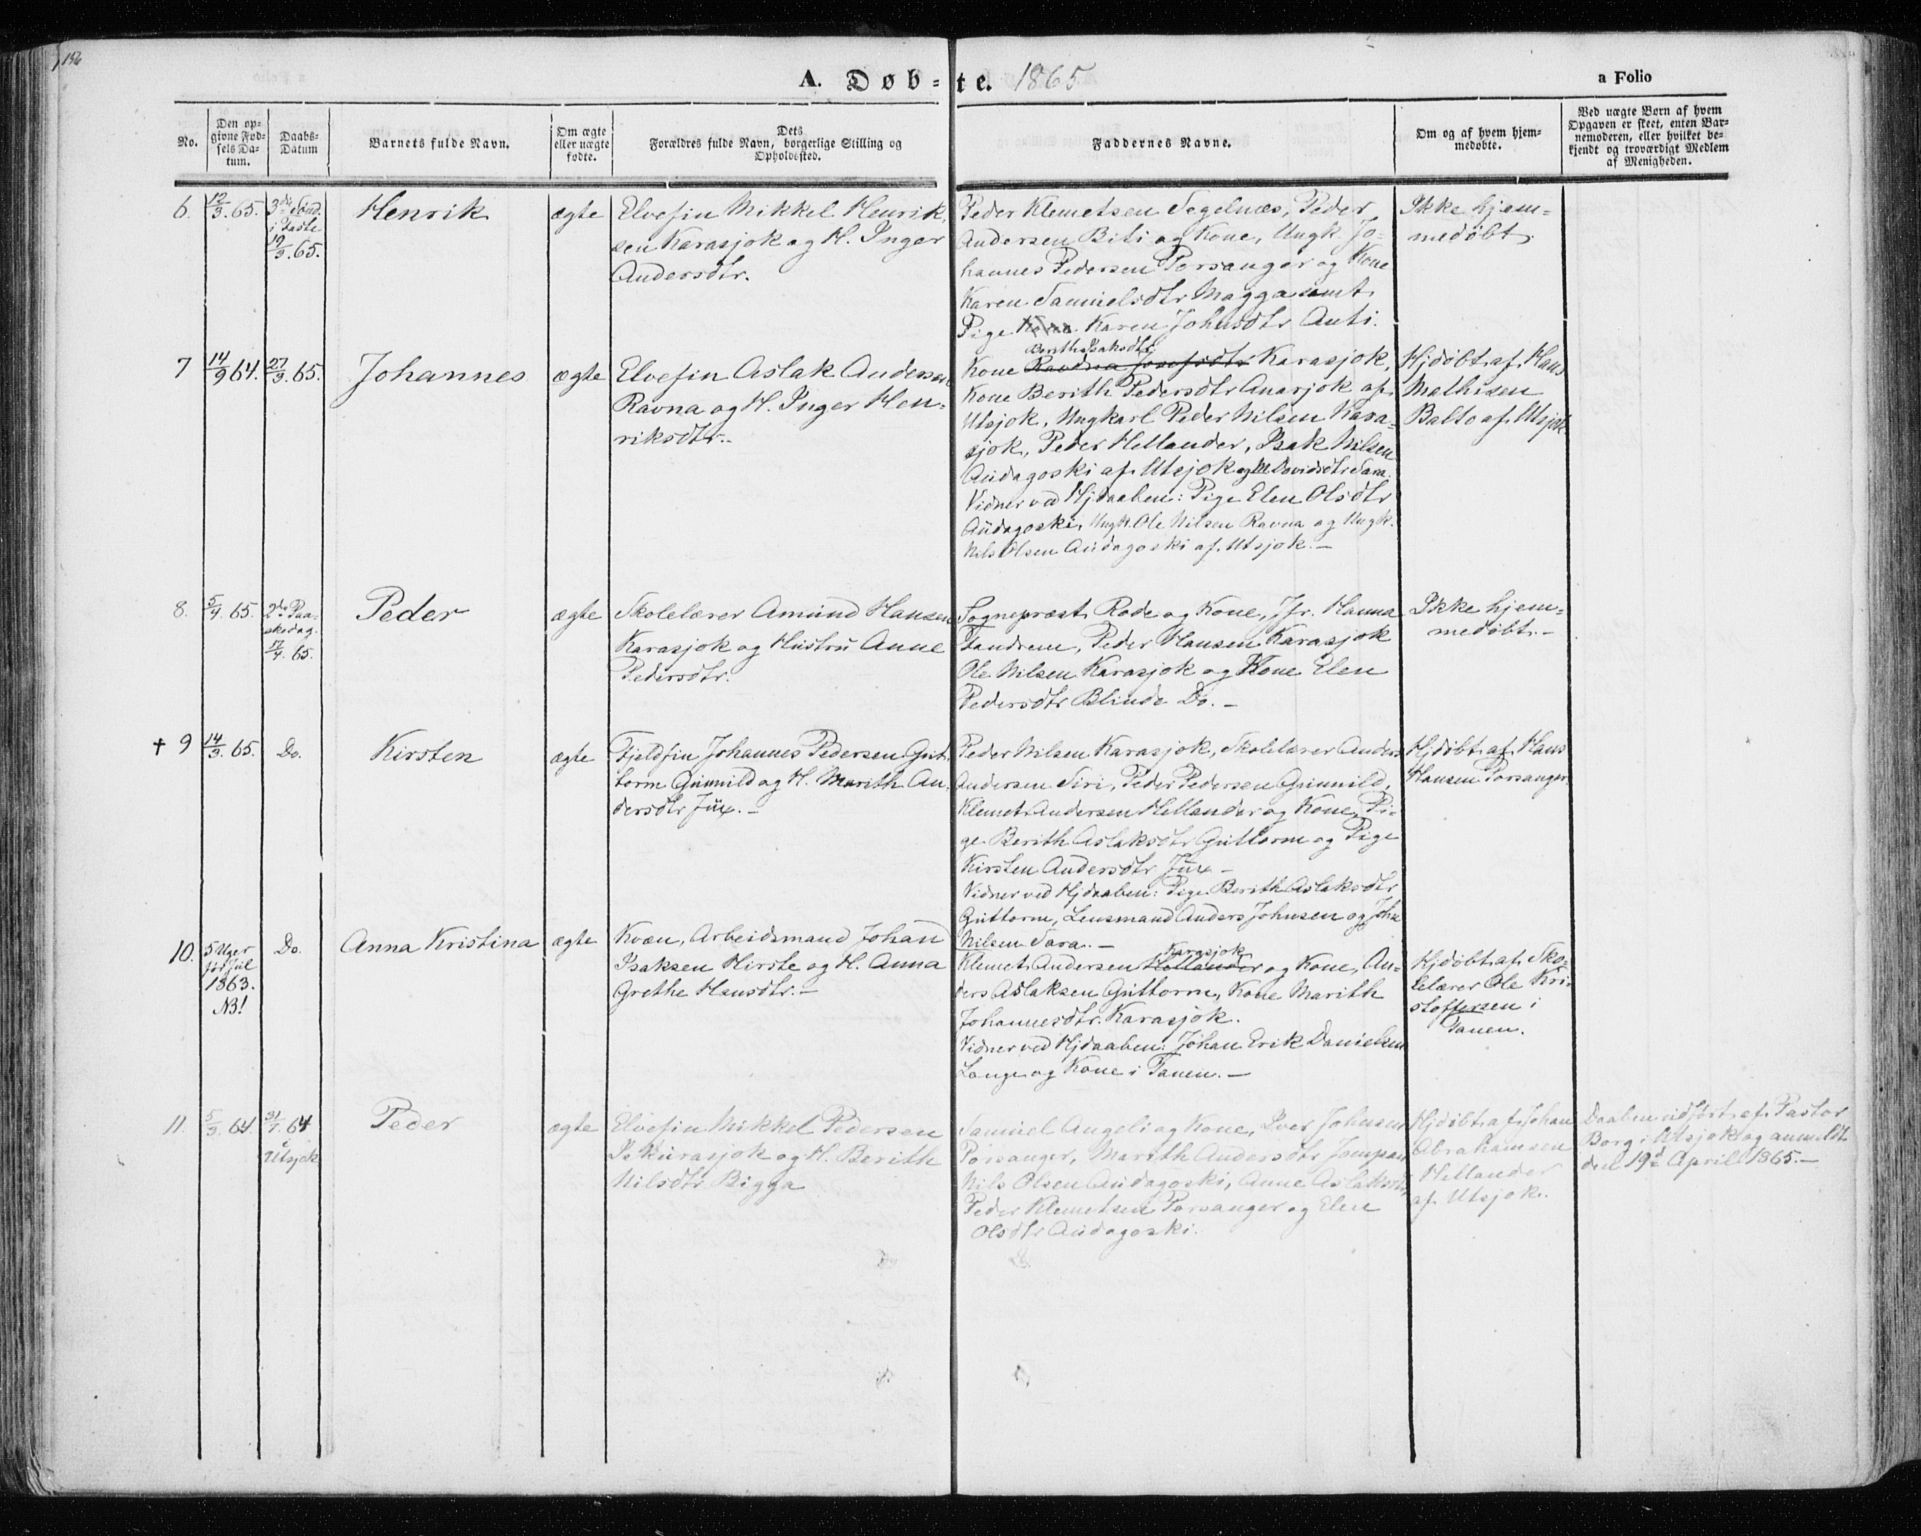 156
A. Døb-te. 1865
a Folio
No.
Den op-
givne Fød-
sels Da-
tum.
Daabs-
Datum
Barnets fulde Navn.
Om ægte
eller uægte
fødte.
Dets
Forældres fulde Navn, borgerlige Stilling og
Opholdssted.
Faddernes Navne.
Om og af hvem hjem-
medøbte.
Ved uægte Børn af hvem
Opgaven er skeet, enten Bar-
nemoderen, eller hvilket be-
kjendt og troværdigt Medlem
af Menigheden.
6. 12/3. 65.
3die Sønd.
i Faste
19/3. 65.
Henrik
ægte
Elvefin Mikkel Henrik-
sen Karasjok og H. Inger
Andersdtr.
Peder Klemetsen Segelnæs, Peder
Andersen Biti og Kone, Ungk. Jo-
hannes Pedersen Porsanger og Kone
Karen Samuelsdtr Magga samt
Pige Karen Johnsdtr Anti.
Ikke hjem-
medøbt
7 14/9 64. 27/3. 65.
Johannes
ægte
Elvefin Aslak Andersen
Ravna og H. Inger Hen-
riksdtr.
Berith Isaksdtr
Kone Ravdna Josefsdtr Karasjok,
Kone Berith Pedersdtr Anarjok af
Utsjok, Ungkarl Peder Nilsen Kara-
sjok, Peder Hellander, Isak Nilsen
Audagoski af Utsjok og M. Davidsdtr Sara.
Vidner ved Hjdaaben: Pige Elen Olsdtr
Audagoski, Ungk. Ole Nilsen Ravna og Ungk.
Nils Olsen Audagoski af Utsjok. —
Hjdøbt af Hans
Mathisen
Balto af Utsjok
8. 5/4. 65.
2den Paa-
skedag.
17/4. 65.
Peder
ægte
Skolelærer Amund Hansen
Karasjok og Hustru Anne
Pedersdtr.
Sognepræst Rode og Kone, Jfr. Hanna
Tandrem, Peder Hansen Karasjok
Ole Nilsen Karasjok og Kone Elen
Pedersdtr Blinde Do. —
Ikke hjem-
medøbt. —
† 9 14/3. 65. Do.
Kirsten
ægte
Fjeldfin Johannes Pedersen Gut-
torm Gumuld og H. Marith An-
dersdtr Jux. —
Peder Nilsen Karasjok, Skolelærer Anders
Andersen Siri, Peder Pedersen Gumuld,
Klemet Andersen Hellander og Kone, Pi-
ge Berith Aslaksdtr Guttorm og Pige
Kirsten Andersdtr Jux —
Vidner ved Hjdaaben: Pige Berith Aslaksdtr
Guttorm, Lensmand Anders Johnsen og John
Nilsen Sara. —
Hjdøbt af Hans
Hansen Porsanger.
10. 5 Uger
før Jul
1863.
NB!
Do.
Anna Kristina
ægte
Kvæn, Arbeidsmand Johan
Isaksen Hirste og H. Anna
Grethe Hansdtr. —
Karasjok
Klemet Andersen Hellander og Kone, An-
ders Aslaksen Guttorm, Kone Marith
Johannesdtr. Karasjok.
Vidner ved Hjdaaben: Johan Erik Danielsen
Lange og Kone i Tanen. —
Hjdøbt af Sko-
lelærer Ole Kri-
stoffersen i
Tanen.
11. 5/3. 64.
31/7. 64
i
Utsjok
Peder
ægte
Elvefin Mikkel Pedersen
P. Karasjok og H. Berith
Nilsdtr Bigga
Samuel Angeli og Kone, Iver Johnsen
Porsanger, Marith Andersdtr Jompan
Nils Olsen Audagoski, Anne Aslaksdtr,
Peder Klemetsen Porsanger og Elen
Olsdtr Audagoski.
Hjdøbt af Johan
Abrahamsen
Hellander
af Utsjok.
Daaben udført af Pastor
Borg i Utsjok og anmeldt
den 19d April 1865. —